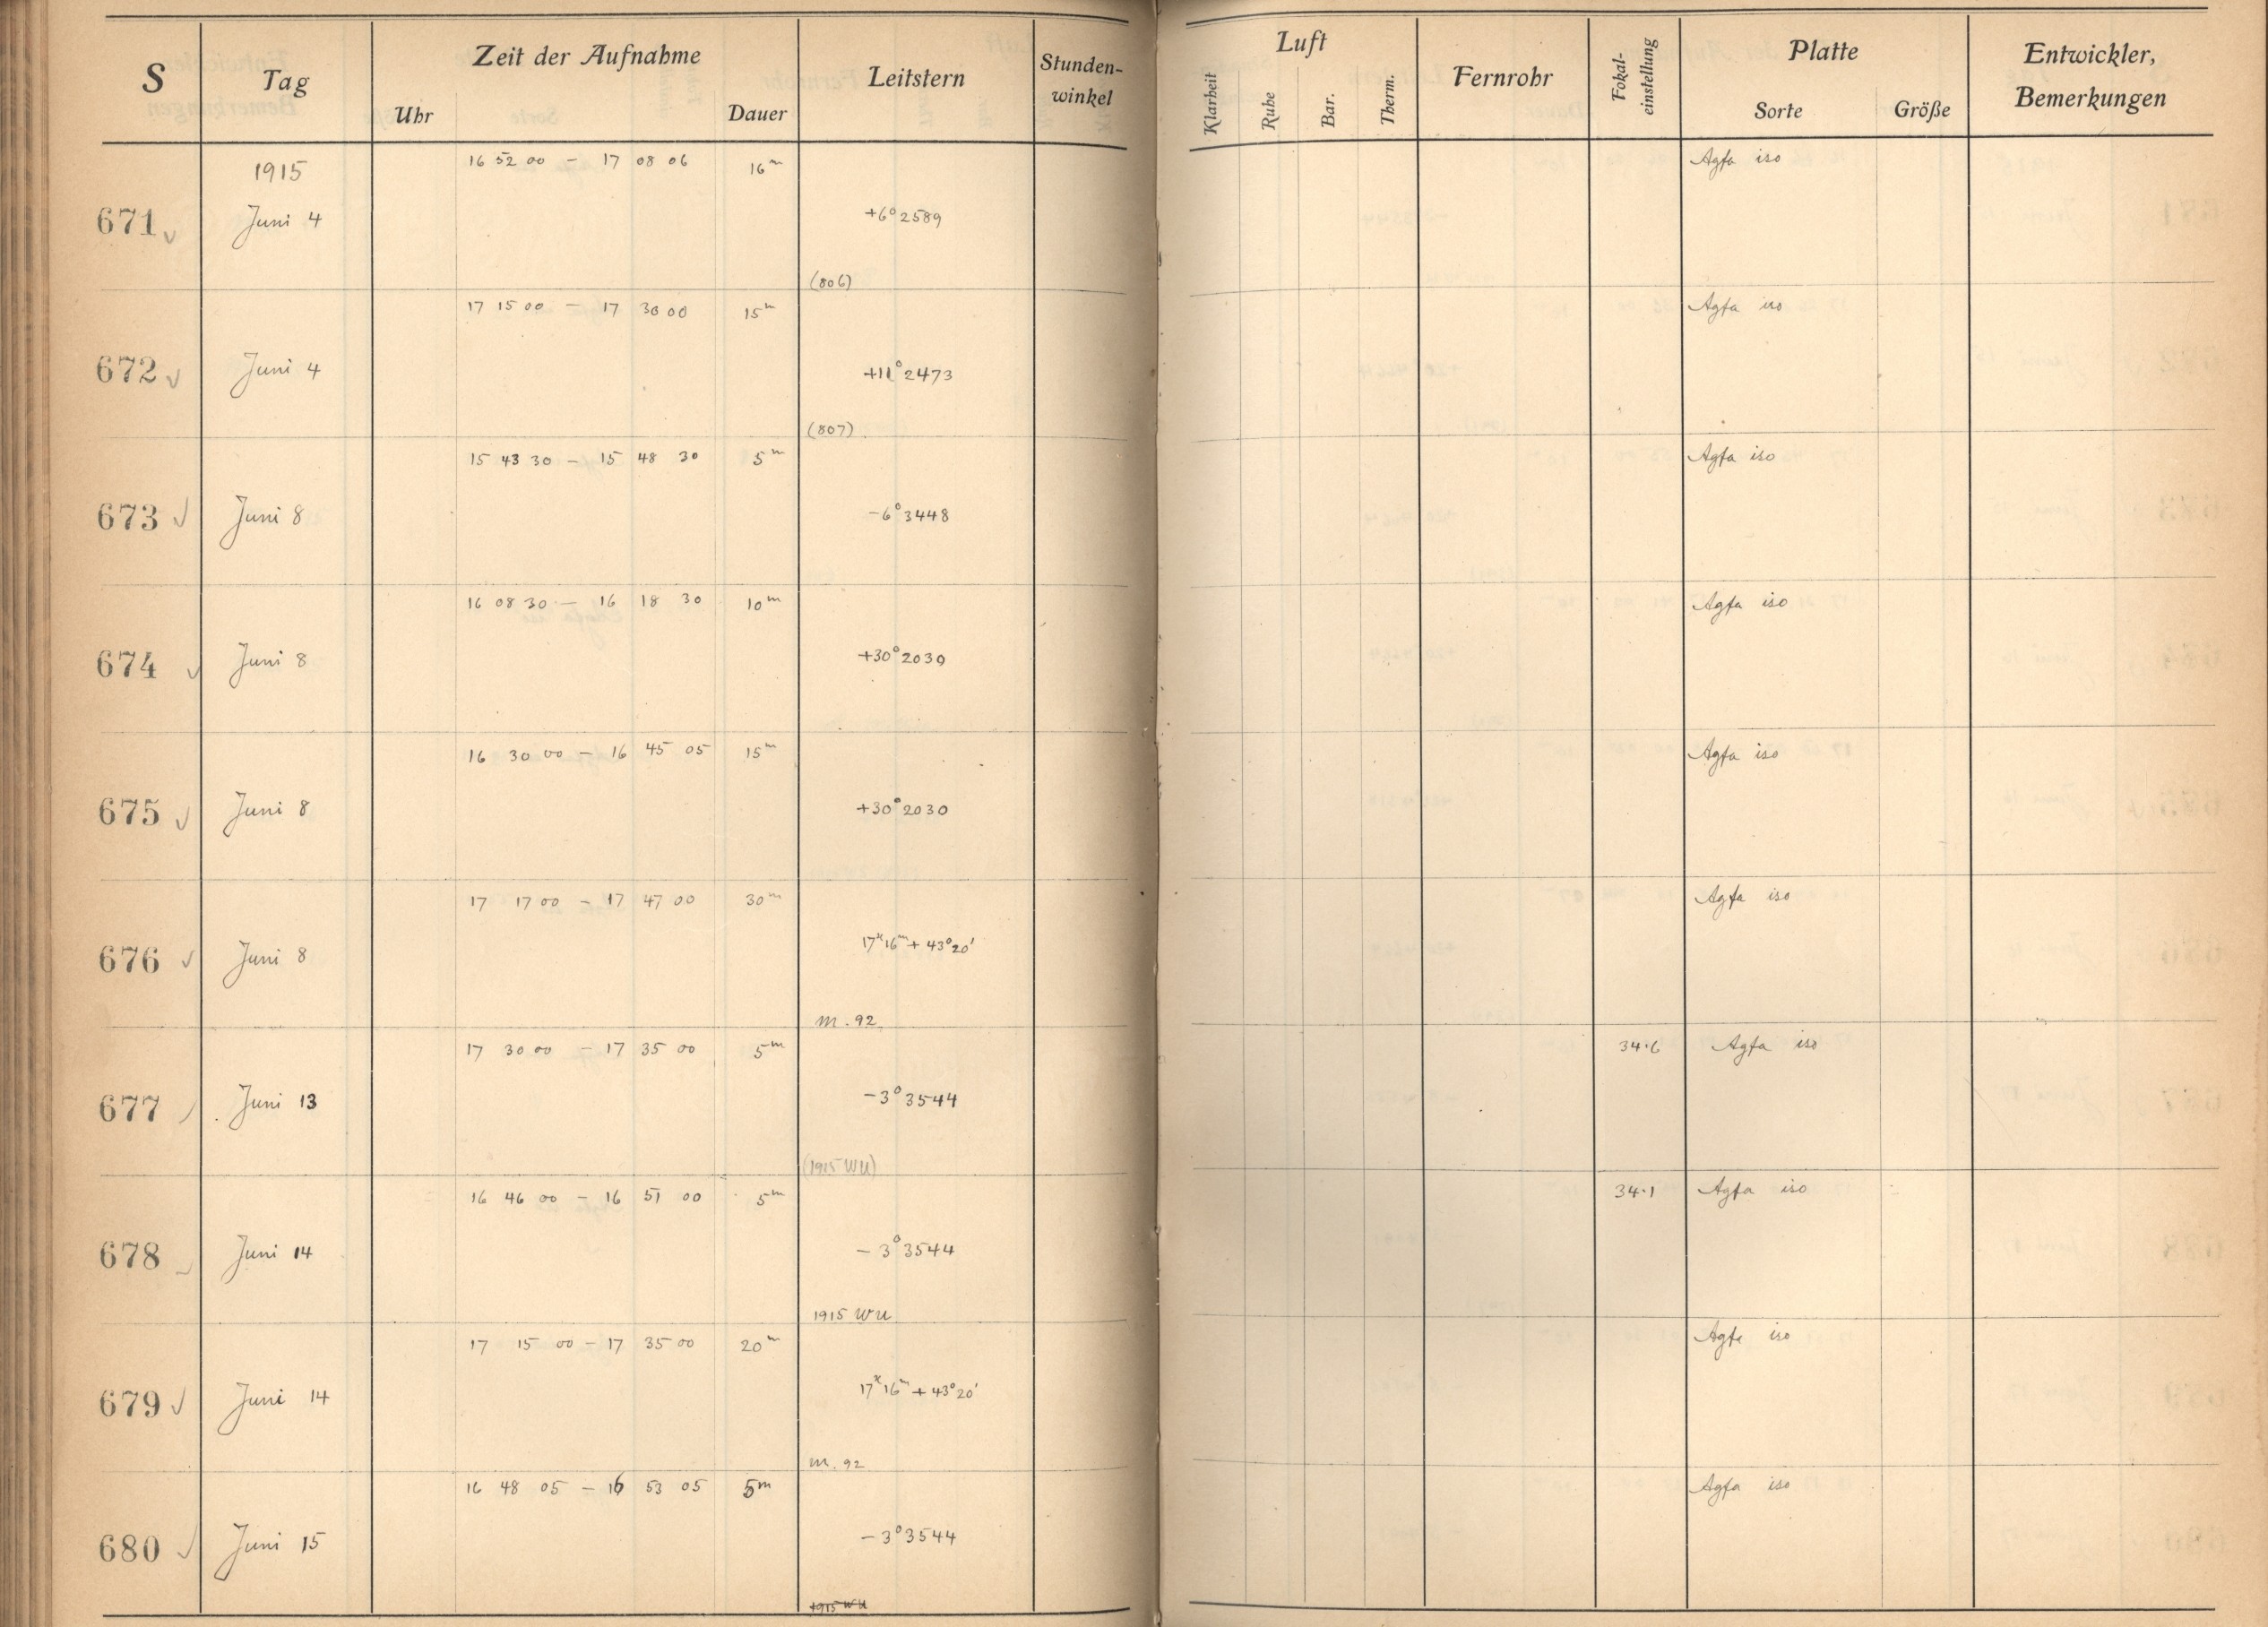 S Tag Zeit der Aufnahme Leitstern Stunden-winkel Luft Fernrohr Fokal-einstellung Platte Entwickler, Bemerkungen
Uhr Dauer Klarheit Ruhe Bar. Therm. Sorte Größe
1915 16 52 00 – 17 08 06 16m Agfa iso
671 Juni 4 +6° 2589
(806)
17 15 00 – 17 30 00 15m Agfa iso
672 Juni 4 +11° 2473
(807)
15 43 30 – 15 48 30 5m Agfa iso
673 Juni 8 –6° 3448
16 08 30 – 16 18 30 10m Agfa iso
674 Juni 8 +30° 2039
16 30 00 – 16 45 05 15m Agfa iso
675 Juni 8 +30° 2030
17 17 00 – 17 47 00 30m Agfa iso
676 Juni 8 17h 16m + 43° 20'
m. 92
17 30 00 – 17 35 00 5m 34.6 Agfa iso
677 Juni 13 –3° 3544
(1915 WU)
16 46 00 – 16 51 00 5m 34.1 Agfa iso
678 Juni 14 – 3° 3544
1915 WU
17 15 00 – 17 35 00 20m Agfa iso
679 Juni 14 17h 16m + 43° 20'
m. 92
16 48 05 – 16 53 05 5m Agfa iso
680 Juni 15 – 3° 3544
1915 WU